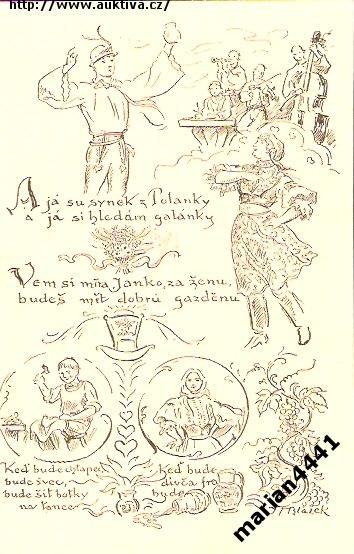 http://www.auktiva.cz/
A já su synek z Polanky
a já si hledám galánky
Vem si mňa Janko, za ženu,
budeš mít dobrú gazděnu
Keď bude chlapec,
bude švec,
bude šit botky
na tanec
Keď bude
divča
bude
marian4441